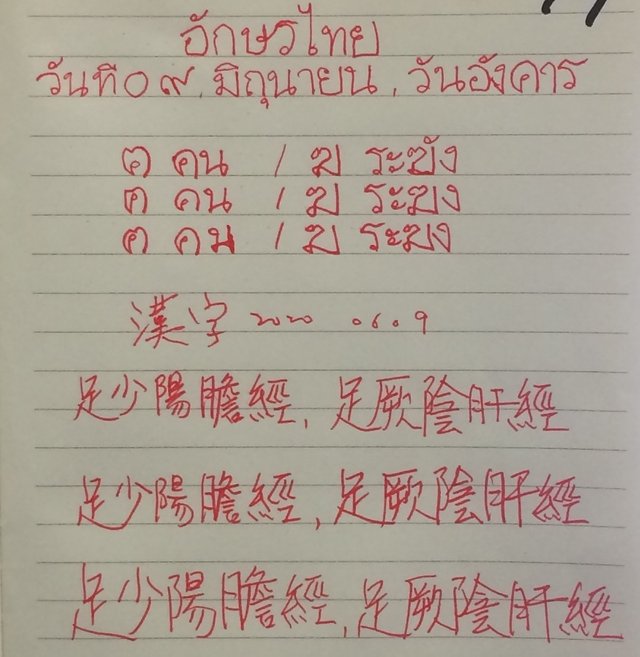 อักษรไทย
วันที่ ๐๙ มิถุนายน , วันอังคาร
ฅ คน / ฆ ระฆัง
ฅ คน / ฆ ระฆัง
ฅ คน / ฆ ระฆัง
漢字 2020 .06.09
足少陽膽經, 足厥陰肝經
足少陽膽經, 足厥陰肝經
足少陽膽經, 足厥陰肝經